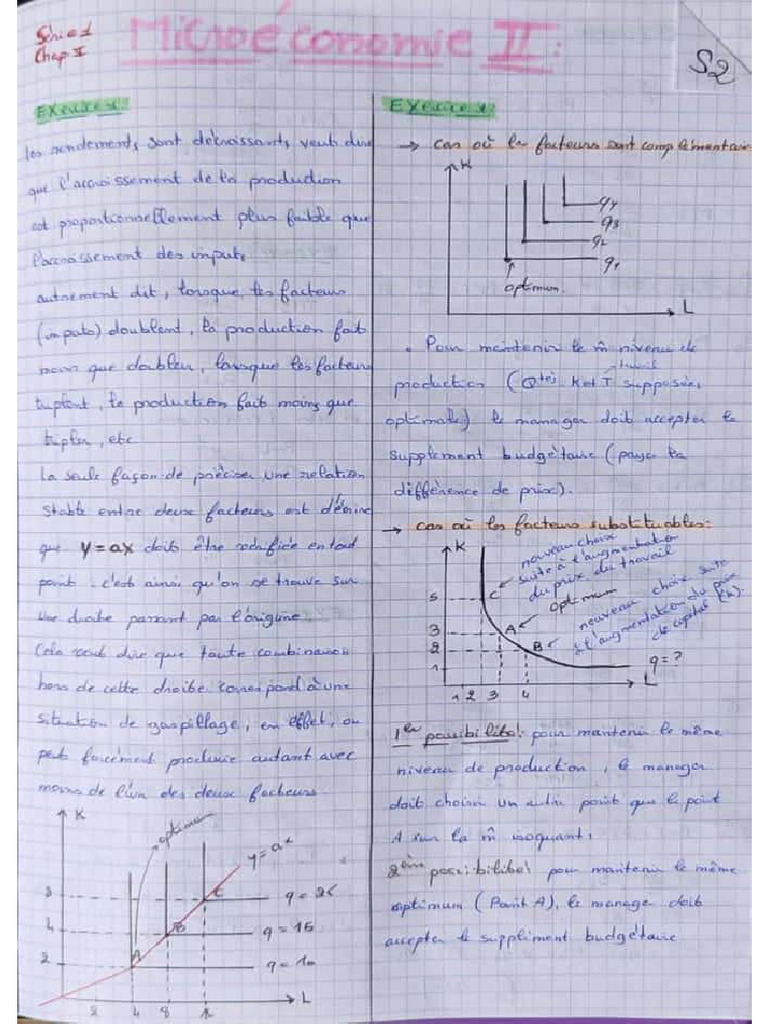 Série 1
Chap I
Microéconomie II :
S2
Exercice 1
les rendements sont décroissants veut dire
que l'accroissement de la production
est proportionnellement plus faible que
l'accroissement des inputs
autrement dit, lorsque les facteurs
(inputs) doublent, la production fait
moins que doubler, lorsque les facteurs
triplent, la production fait moins que
tripler, etc
La seule façon de préciser une relation
stable entre deux facteurs est d'écrire
que y=ax doit être vérifiée en tout
point. c'est ainsi qu'on se trouve sur
une droite passant par l'origine.
Cela veut dire que toute combinaison
hors de cette droite correspond à une
situation de gaspillage, en effet, on
peut forcément produire autant avec
moins de l'un des deux facteurs.
K
optimum
y=ax
C
q=
B
q=
A
q=
4
2
2 4 8
L
Exercice
→ cas où les facteurs sont complémentair
K
q4
q3
q2
q1
optimum
L
. Pour maintenir le m̂ niveau de
travail
production (Qtés K et T supposées
optimale) le manager doit accepter le
supplément budgétaire (payer la
différence de prix).
→ cas où les facteurs substituables:
K
nouveau choix
suite à l'augmentation
du prix du travail
5
C
optimum
3
A
nouveau choix suite
à l'augmentation du prix
de capital
2
B
1
q=?
1 2 3 4
L
1ère possibilité: pour maintenir le même
niveau de production, le manager
doit choisir un autre point que le point
A sur la m̂ isoquante
2ème possibilité: pour maintenir le même
optimum (Point A), le manage doit
accepter le supplément budgétaire